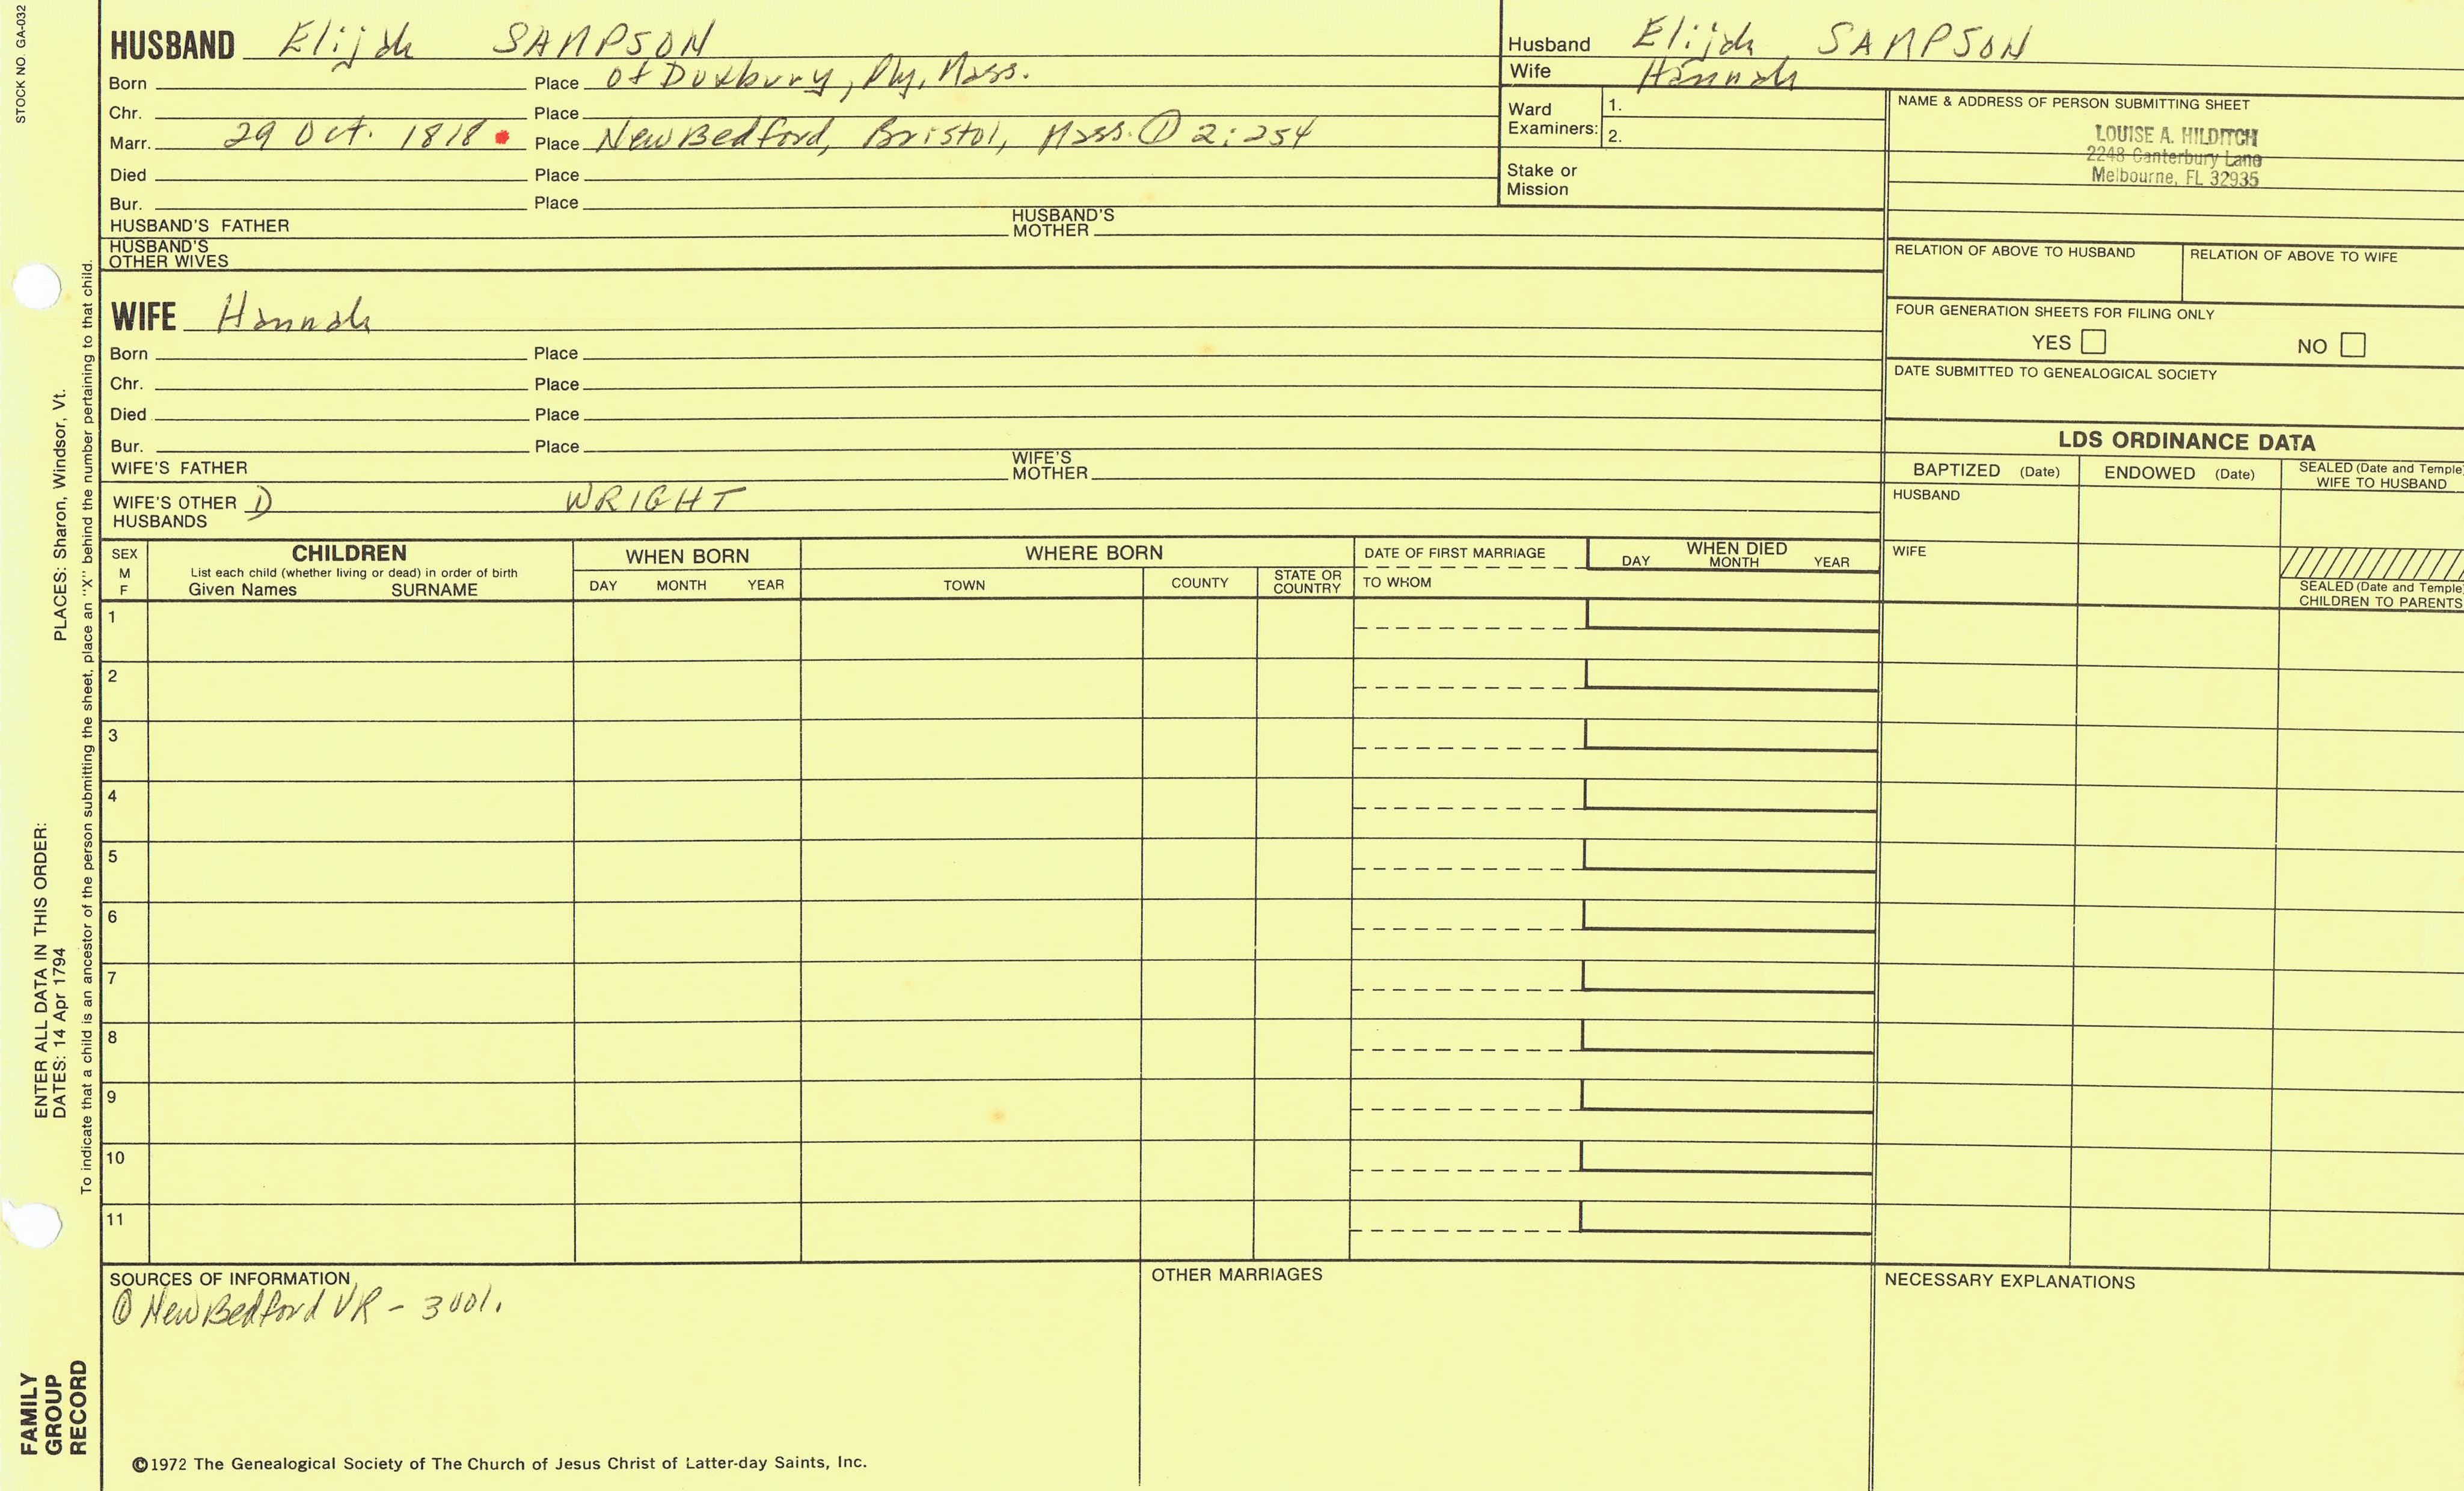 STOCK NO. GA-032
HUSBAND Elijah SAMPSON
Born Place of Duxbury, Ply, Mass.
Chr. Place
Marr. 29 Oct. 1818 Place New Bedford, Bristol, Mass. ① 2:254
Died Place
Bur. Place
HUSBAND'S FATHER HUSBAND'S MOTHER
HUSBAND'S OTHER WIVES
WIFE Hannah
Born Place
Chr. Place
Died Place
Bur. Place
WIFE'S FATHER WIFE'S MOTHER
WIFE'S OTHER HUSBANDS ① WRIGHT
Husband Elijah SAMPSON
Wife Hannah
Ward Examiners: 1.
2.
Stake or Mission
NAME & ADDRESS OF PERSON SUBMITTING SHEET
LOUISE A. HILDITCH
2248 Canterbury Lane
Melbourne, FL 32935
RELATION OF ABOVE TO HUSBAND RELATION OF ABOVE TO WIFE
FOUR GENERATION SHEETS FOR FILING ONLY
YES NO
DATE SUBMITTED TO GENEALOGICAL SOCIETY
LDS ORDINANCE DATA
BAPTIZED (Date) ENDOWED (Date) SEALED (Date and Temple) WIFE TO HUSBAND
HUSBAND
WIFE
SEALED (Date and Temple) CHILDREN TO PARENTS
SEX M F
CHILDREN
List each child (whether living or dead) in order of birth
Given Names SURNAME
WHEN BORN
DAY MONTH YEAR
WHERE BORN
TOWN COUNTY STATE OR COUNTRY
DATE OF FIRST MARRIAGE
TO WHOM
WHEN DIED
DAY MONTH YEAR
1
2
3
4
5
6
7
8
9
10
11
SOURCES OF INFORMATION
① New Bedford VR - 3 vol.
OTHER MARRIAGES
NECESSARY EXPLANATIONS
©1972 The Genealogical Society of The Church of Jesus Christ of Latter-day Saints, Inc.
ENTER ALL DATA IN THIS ORDER:
DATES: 14 Apr 1794 PLACES: Sharon, Windsor, Vt.
To indicate that a child is an ancestor of the person submitting the sheet, place an "X" behind the number pertaining to that child.
FAMILY
GROUP
RECORD